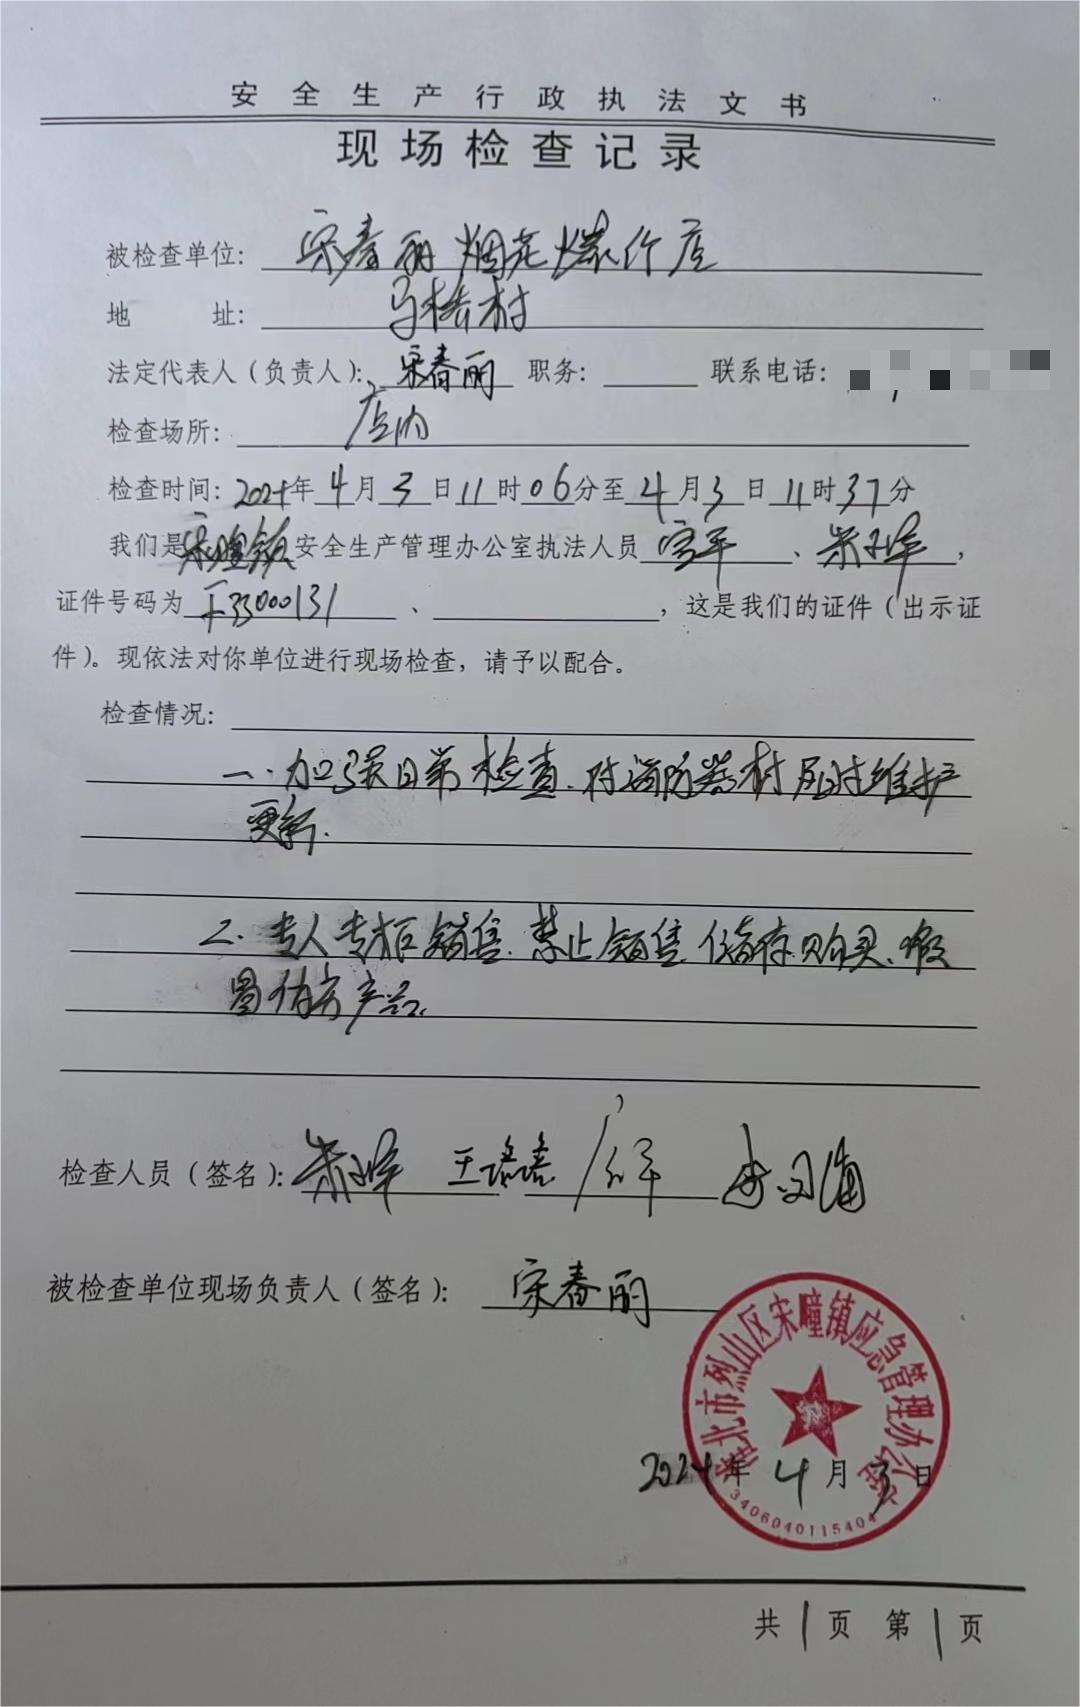 安全生产行政执法文书
现场检查记录
被检查单位：宋春丽烟花爆竹店
地 址：马桥村
法定代表人（负责人）：宋春丽 职务： 联系电话：
检查场所：店内
检查时间：2024年4月3日11时06分至4月3日11时37分
我们是宋疃镇安全生产管理办公室执法人员 、 ，
证件号码为 33000131 、 ，这是我们的证件（出示证
件）。现依法对你单位进行现场检查，请予以配合。
检查情况：
一.加强日常检查.对消防器材及时维护
更新.
二.专人专柜销售.禁止销售.储存.购买.假
冒伪劣产品.
检查人员（签名）： 王
被检查单位现场负责人（签名）：宋春丽
淮北市烈山区宋疃镇应急管理办公室
2024年4月3日
3406040115404
共1页 第1页